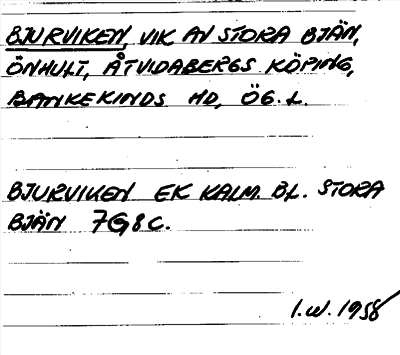 BJURVIKEN, VIK AV STORA BJÄN,
ÖNHULT, ÅTVIDABERGS KÖPING,
BANKEKINDS HD, ÖG. L.
BJURVIKEN EK KALM. BL. STORA
BJÄN 7G8C.
I.W. 1958